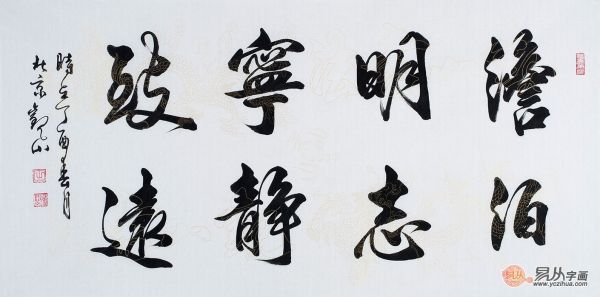 澹泊
明志
寧静
致遠
時在丁酉春月
北京觀山
易从字画
www.yczihua.com